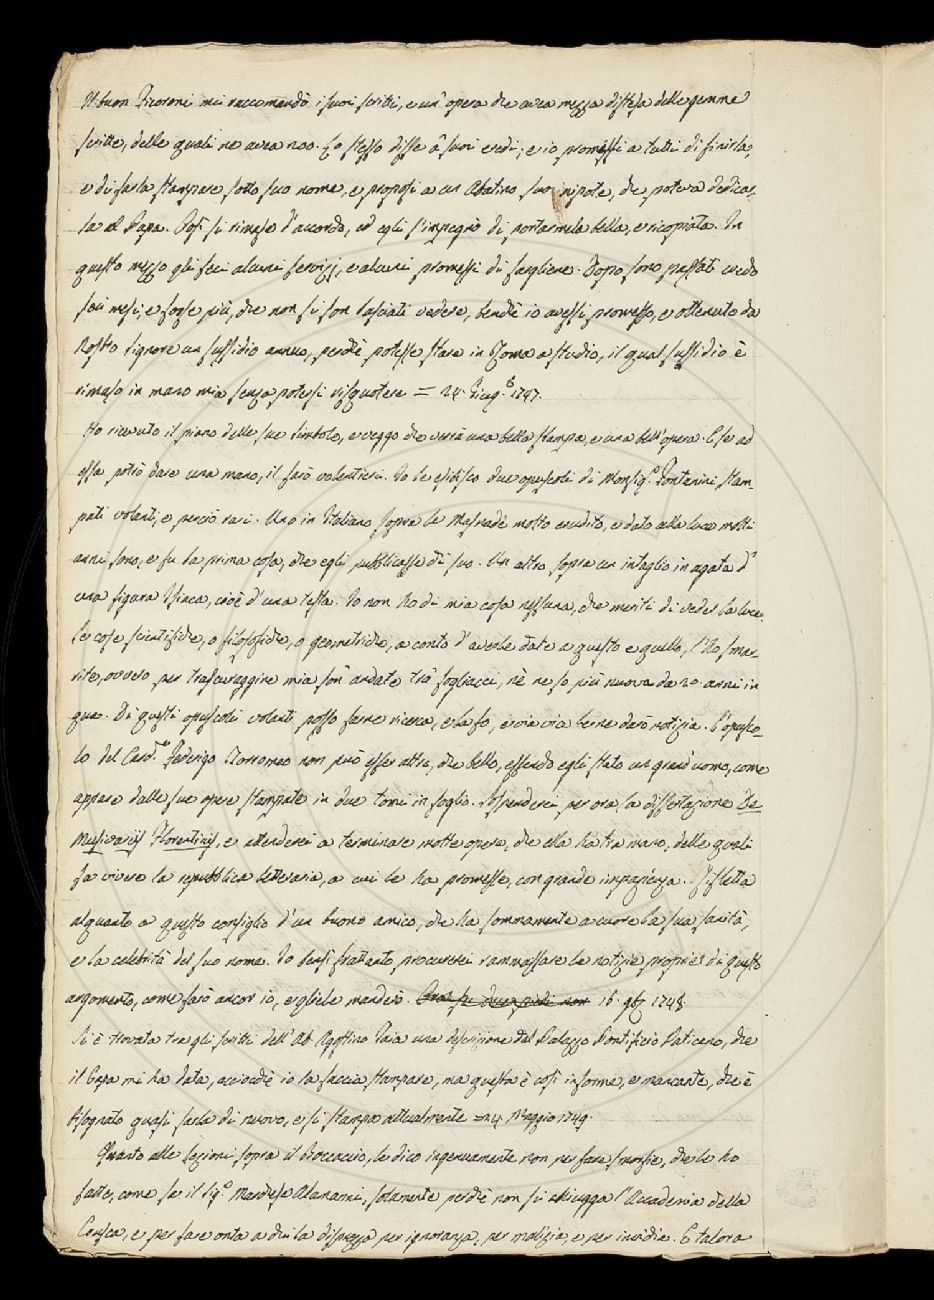 Il buon Ficoroni mi raccomandò i suoi scritti, e un' opera che avea mezza distesa delle gemme
scritte, delle quali ne avea 200. Lo stesso disse a' suoi eredi; e io promessi a tutti di finirla,
e di farla stampare sotto suo nome, e proposi a un Abatino suo nipote, che poteva dedicar-
la al Papa. Così si rimase d'accordo, ed egli s'impegnò di portarmela bella, e ricopiata. In
questo mezzo gli feci alcuni servizj, e alcuni promessi di fargliene. Dopo sono passati credo
sei mesi, e forse più, che non si son lasciati vedere, benchè io avessi promesso, e ottenuto da
Nostro Signore un sussidio annuo, perchè potesse stare in Roma a studio, il qual sussidio è
rimaso in mano mia senza potersi risquotere = 24. Giug.º 1747.
Ho ricevuto il piano delle sue Simbole, e veggo che verrà una bella stampa, e una bell'opera. E se ad
essa potrò dare una mano, il farò volentieri. Io le esibisco due opuscoli di Monsig.r Fontanini stam-
pati volanti, e perciò rari. Uno in Italiano sopra le Masnade molto erudito, e dato alla luce molti
anni sono, e fu la prima cosa, che egli pubblicasse di suo. Un altro sopra un intaglio in agata d'
una figura Isiaca, cioè d'una testa. Io non ho di mia cosa nessuna, che meriti di veder la luce.
Le cose scientifiche, o filosofiche, o geometriche, a conto d'averle date a questo e quello, l'ho smar-
rite, ovvero per trascuraggine mia son andate trà fogliacci, nè ne so più nuova da 20 anni in
qua. Di questi opuscoli volanti posso farne ricerca, e la fo, e via via le ne darò notizia. L'opusco-
lo del Card.le Federigo Borromeo non può esser altro, che bello, essendo egli stato un grand'uomo, come
appare dalle sue opere stampate in due tomi in foglio. Sospenderei per ora la dissertazione De
Musivariis Florentinis, e attenderei a terminare molte opere, che ella ha tra mano, delle quali
fa vivere la repubblica letteraria, a cui le ha promesse, con grande impazienza. Rifletta
alquanto a questo consiglio d'un buono amico, che ha sommamente a cuore la sua sanità,
e la celebrità del suo nome. Io bensì frattanto procurerei rammassare le notizie proprie di questo
argomento, come farò ancor io, e gliele manderò. 16. 9bre 1748
Si è trovata tra gli scritti dell'Ab. Agostino Taia una descrizione del Palazzo Pontificio Vaticano, che
il Papa mi ha data, acciocchè io la faccia stampare, ma questa è così informe, e mancante, che è
bisognato quasi farla di nuovo, e si stampa attualmente = 24. Maggio 1749.
Quanto alle lezioni sopra il Boccaccio, le dico ingenuamente non per fare smorfie, che le ho
fatte, come sa il Sig.r Marchese Alamanni, solamente perchè non si chiugga l'Accademia della
Crusca, e per fare onta a chi la disprezza per ignoranza, per malizia, e per invidia. E talora